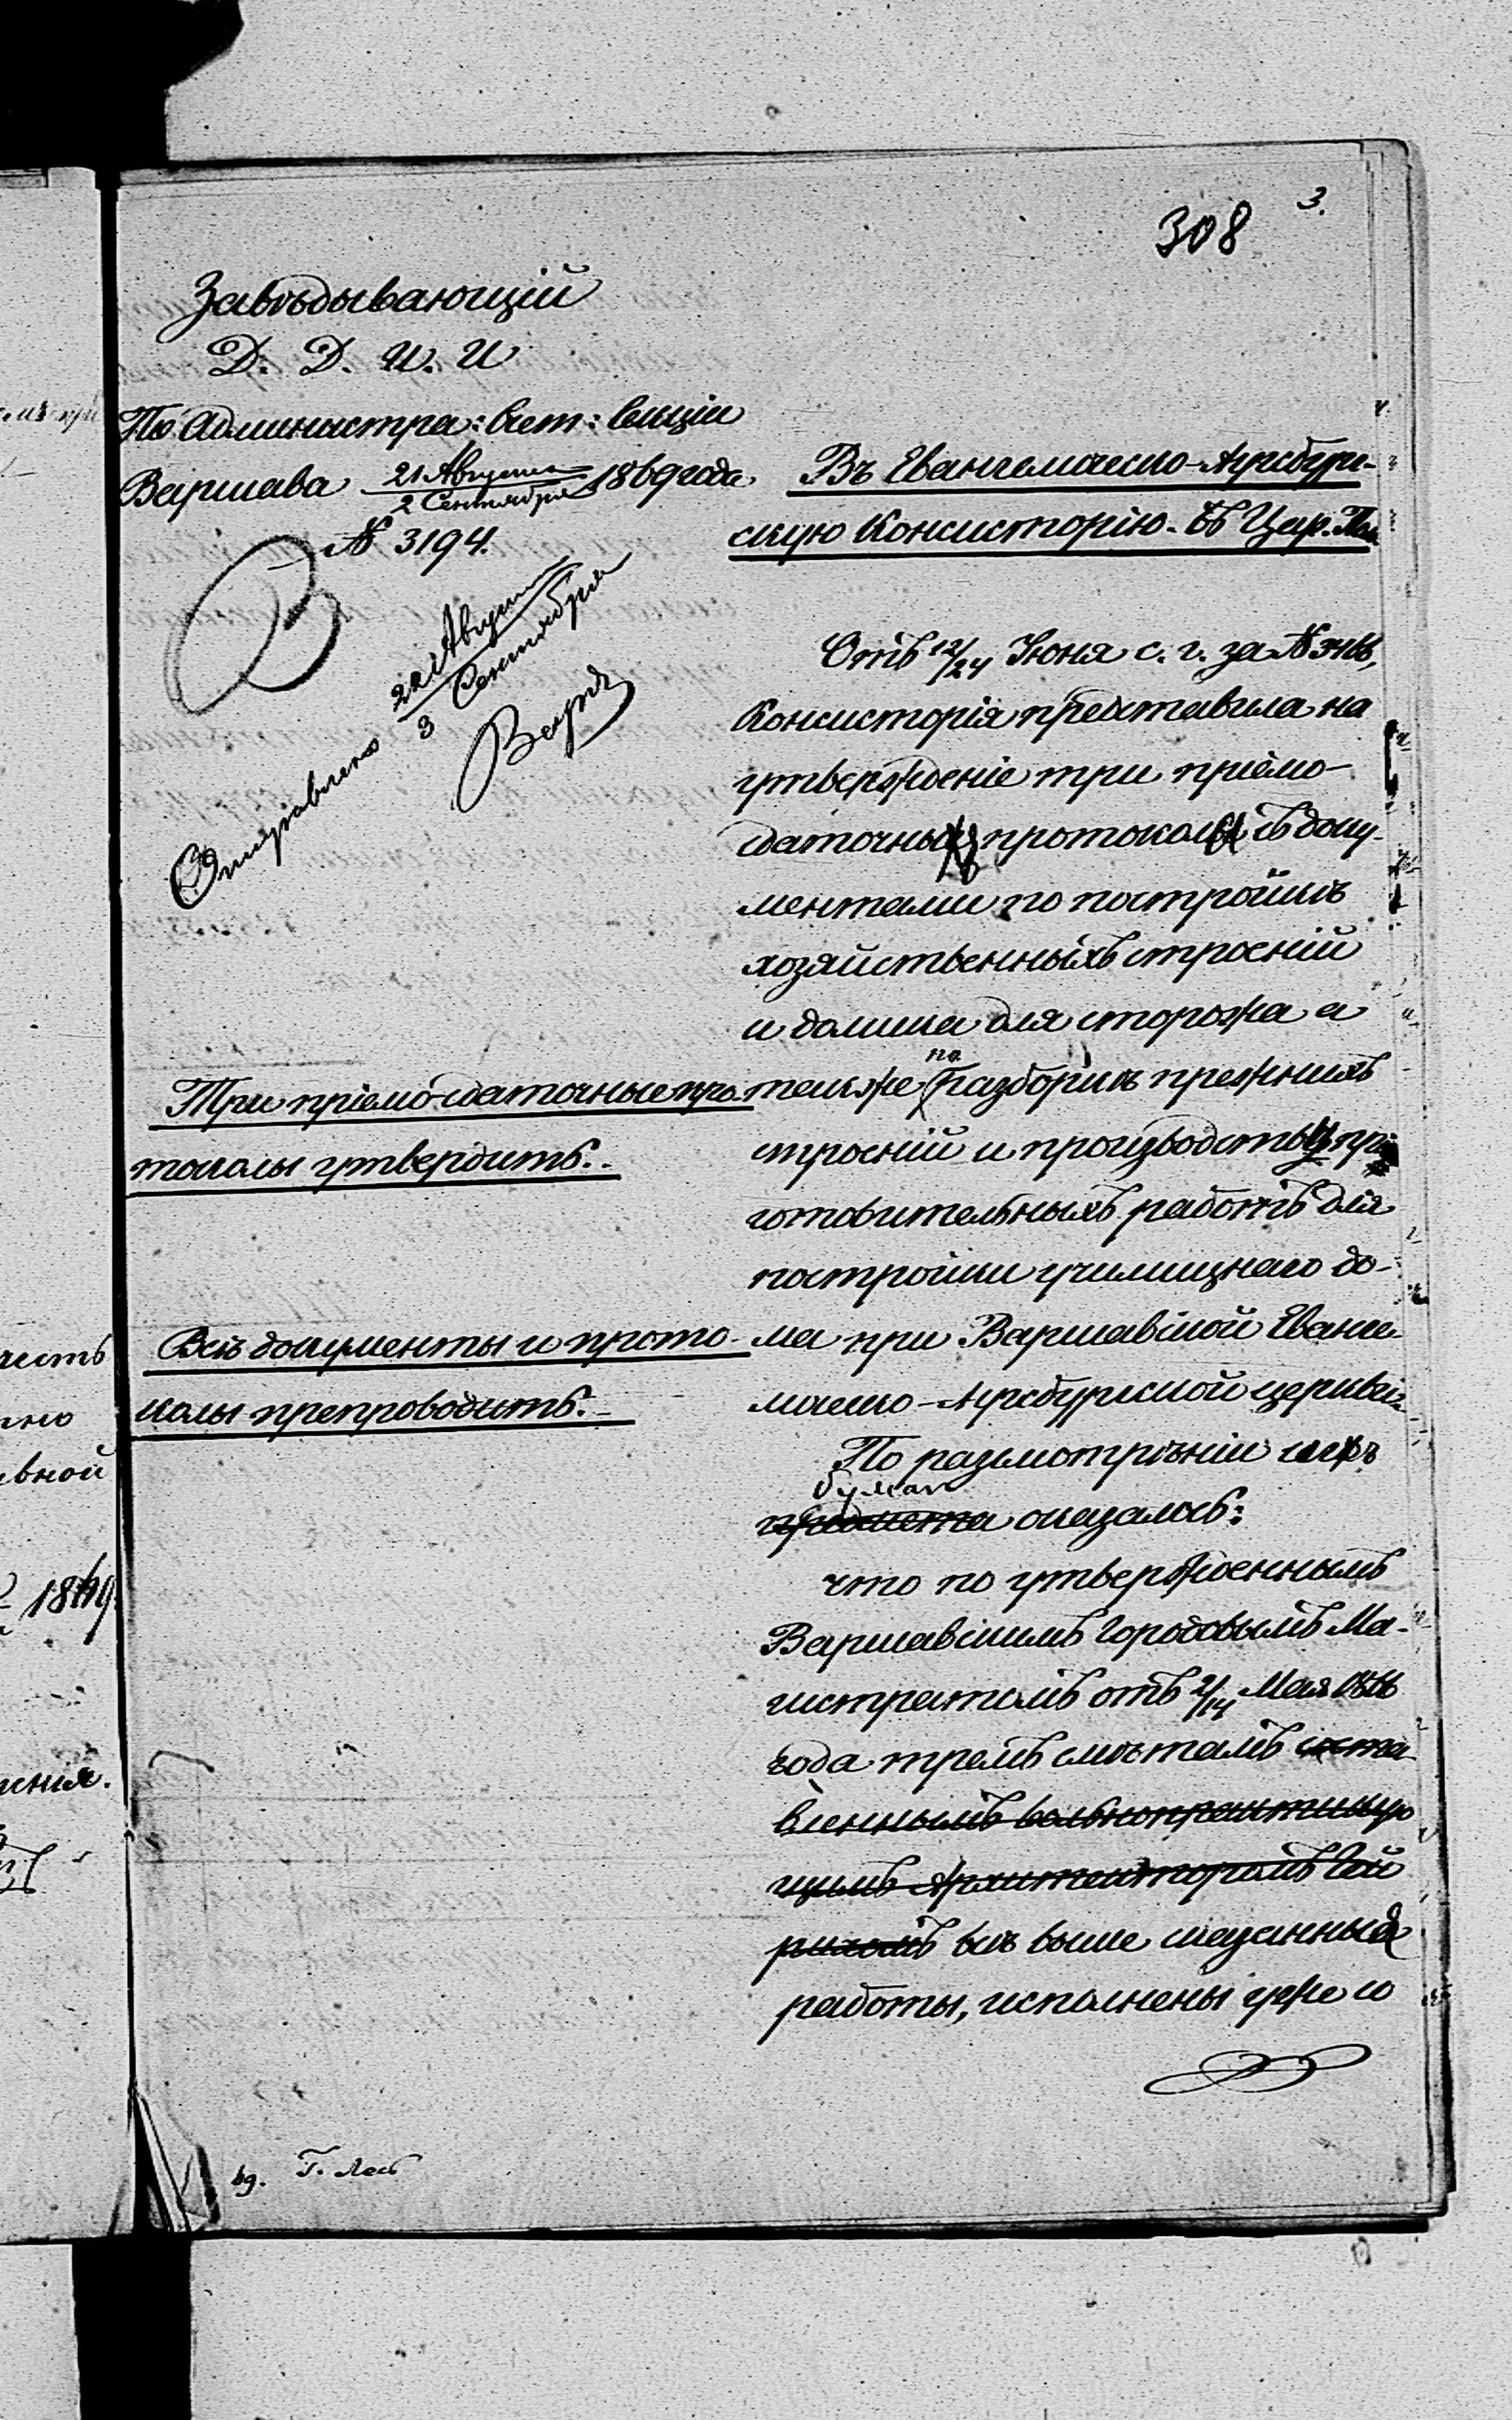 308
3.
Завѣдывающій
Д. Д. И. И
По Администра: Счет: Секціи
Варшава 21 Августа / 2 Сентября 1869 года.
№ 3194.
Отправлено 22 Августа / 3 Сентября
Въ Евангелическо-Аугсбург-
скую Консисторію. въ Цар. Пол
Отъ 12/24 Іюня с. г. за №
Консисторія представила на
утвержденіе три пріемо-
сдаточныхъ протокола съ доку-
ментами по постройкѣ
хозяйственныхъ строеній
и домика для сторожа а
также по разборкѣ прежнихъ
строеній и производству при
готовительныхъ работъ для
постройки училищнаго до-
ма при Варшавской Еванге-
лическо-Аугсбургской церкви.
По разсмотрѣніи сихъ
бумагъ
предмета оказалось:
что по утвержденнымъ
Варшавскимъ Городовымъ Ма-
гистратомъ отъ 2/14 Мая 1866
года тремъ смѣтамъ соста
вленнымъ вольнопрактикую
щимъ Архитекторомъ Гей
рихомъ всѣ выше сказанныя
работы, исполнены уже и
Три пріемо-сдаточные про-
токолы утвердить.
Всѣ документы и прото-
колы препроводить.
вной
1869